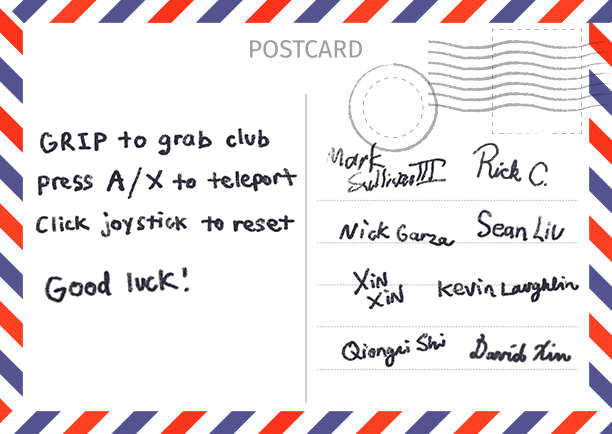 POSTCARD
GRIP to grab club
press A/X to teleport
Click joystick to reset
Good luck!
Mark Sullivan III
Rick C.
Nick Garza
Sean Liu
Xin Xin
Kevin Laughlin
Shi
David Xin